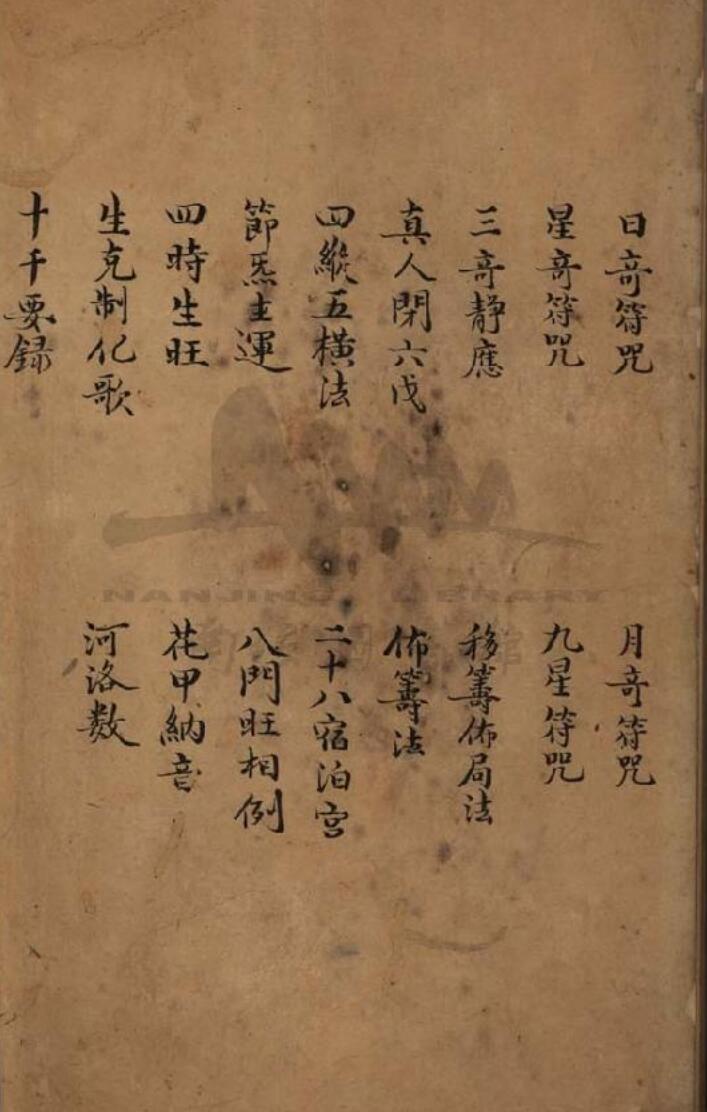 日竒符咒
月竒符咒
星竒符咒
九星符咒
三竒静應
移籌佈局法
真人閉六戊
佈籌法
四縱五橫法
二十八宿泊宫
節炁主運
八門旺相例
四時生旺
花甲納音
生克制化歌
河洛數
十千要録
NANJING LIBRARY